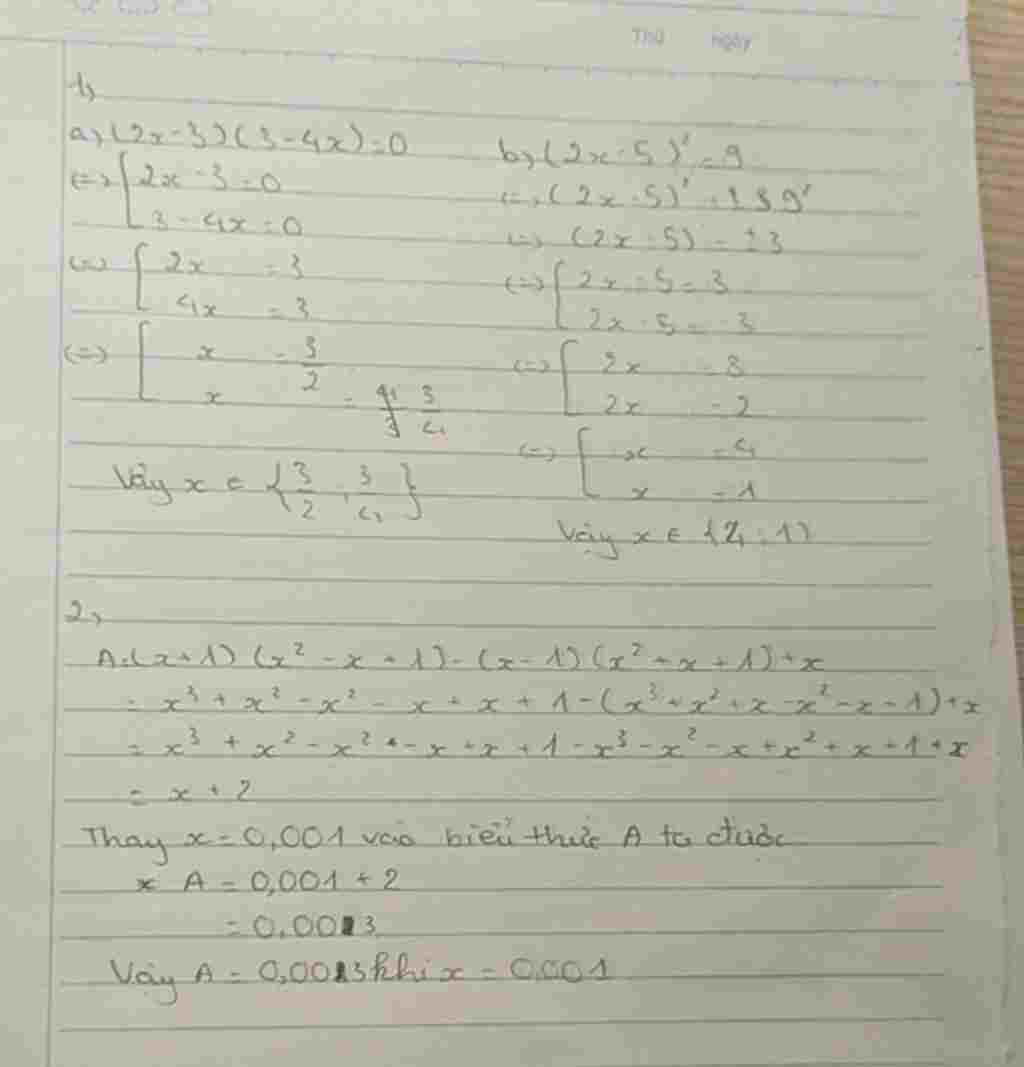 Thứ Ngày
1,
a, (2x-3)(3-4x)=0
<=> [2x-3=0
3-4x=0
<=> [2x = 3
4x = 3
<=> [x = 3/2
x = 3/4
Vậy x ∈ {3/2, 3/4}
b, (2x-5)²=9
<=> (2x-5) = ±3
<=> [2x-5=3
2x-5=-3
<=> [2x = 8
2x = 2
<=> [x = 4
x = 1
Vậy x ∈ {4;1}
2,
A=(x+1)(x²-x+1)-(x-1)(x²+x+1)+x
= x³+x²-x²-x+x+1-(x³+x²+x-x²-x-1)+x
= x³+x²-x²-x+x+1-x³-x²-x+x²+x+1+x
= x+2
Thay x=0,001 vào biểu thức A ta được
A = 0,001+2
= 0,003
Vậy A = 0,003 khi x = 0,001